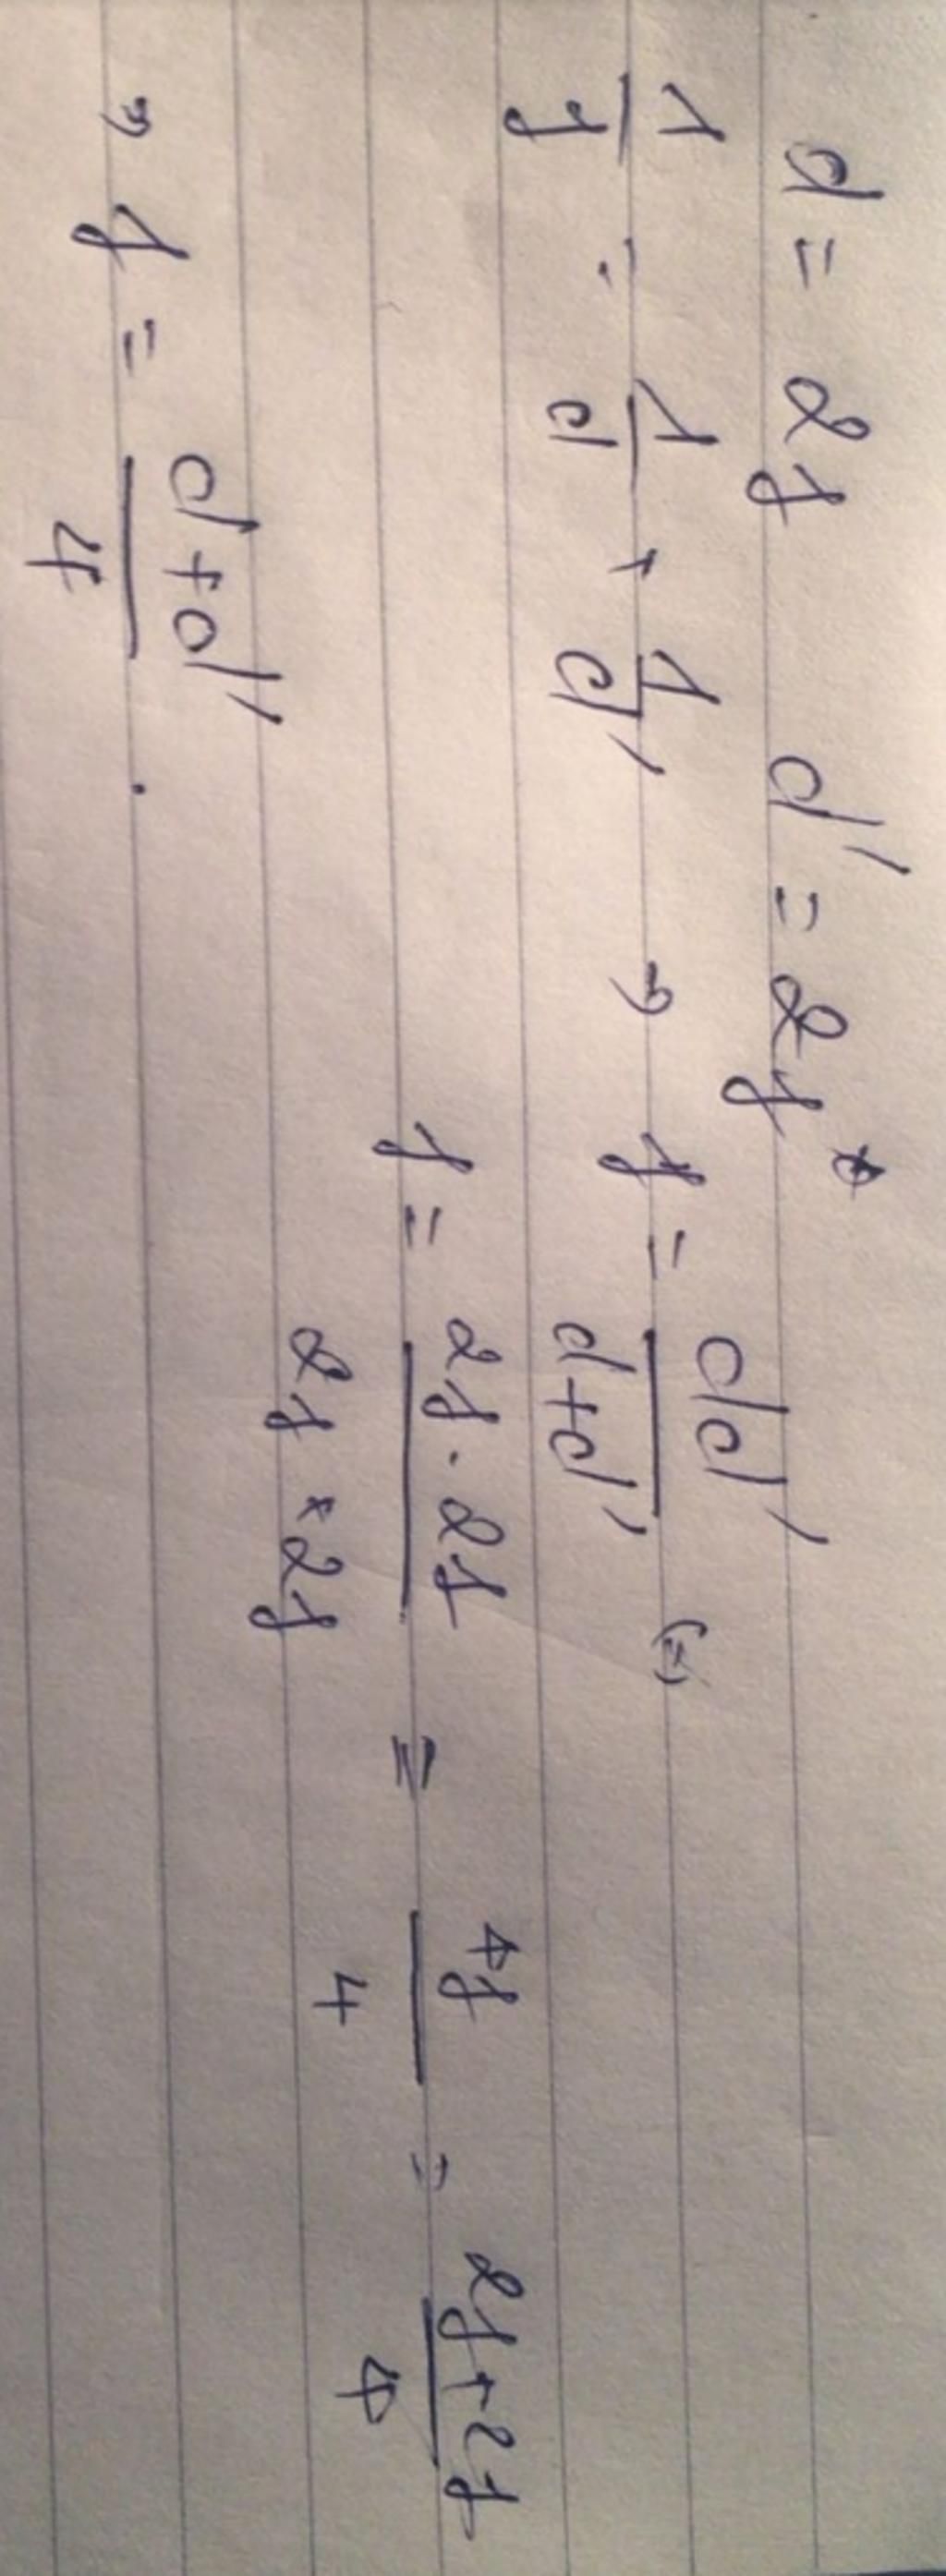 d = 2f d' = 2f
1/f = 1/d + 1/d' → f = dd'/(d+d') (=)
f = (2f . 2f)/(2f + 2f) = 4f/4 = (2f+2f)/4
→ f = (d+d')/4 .